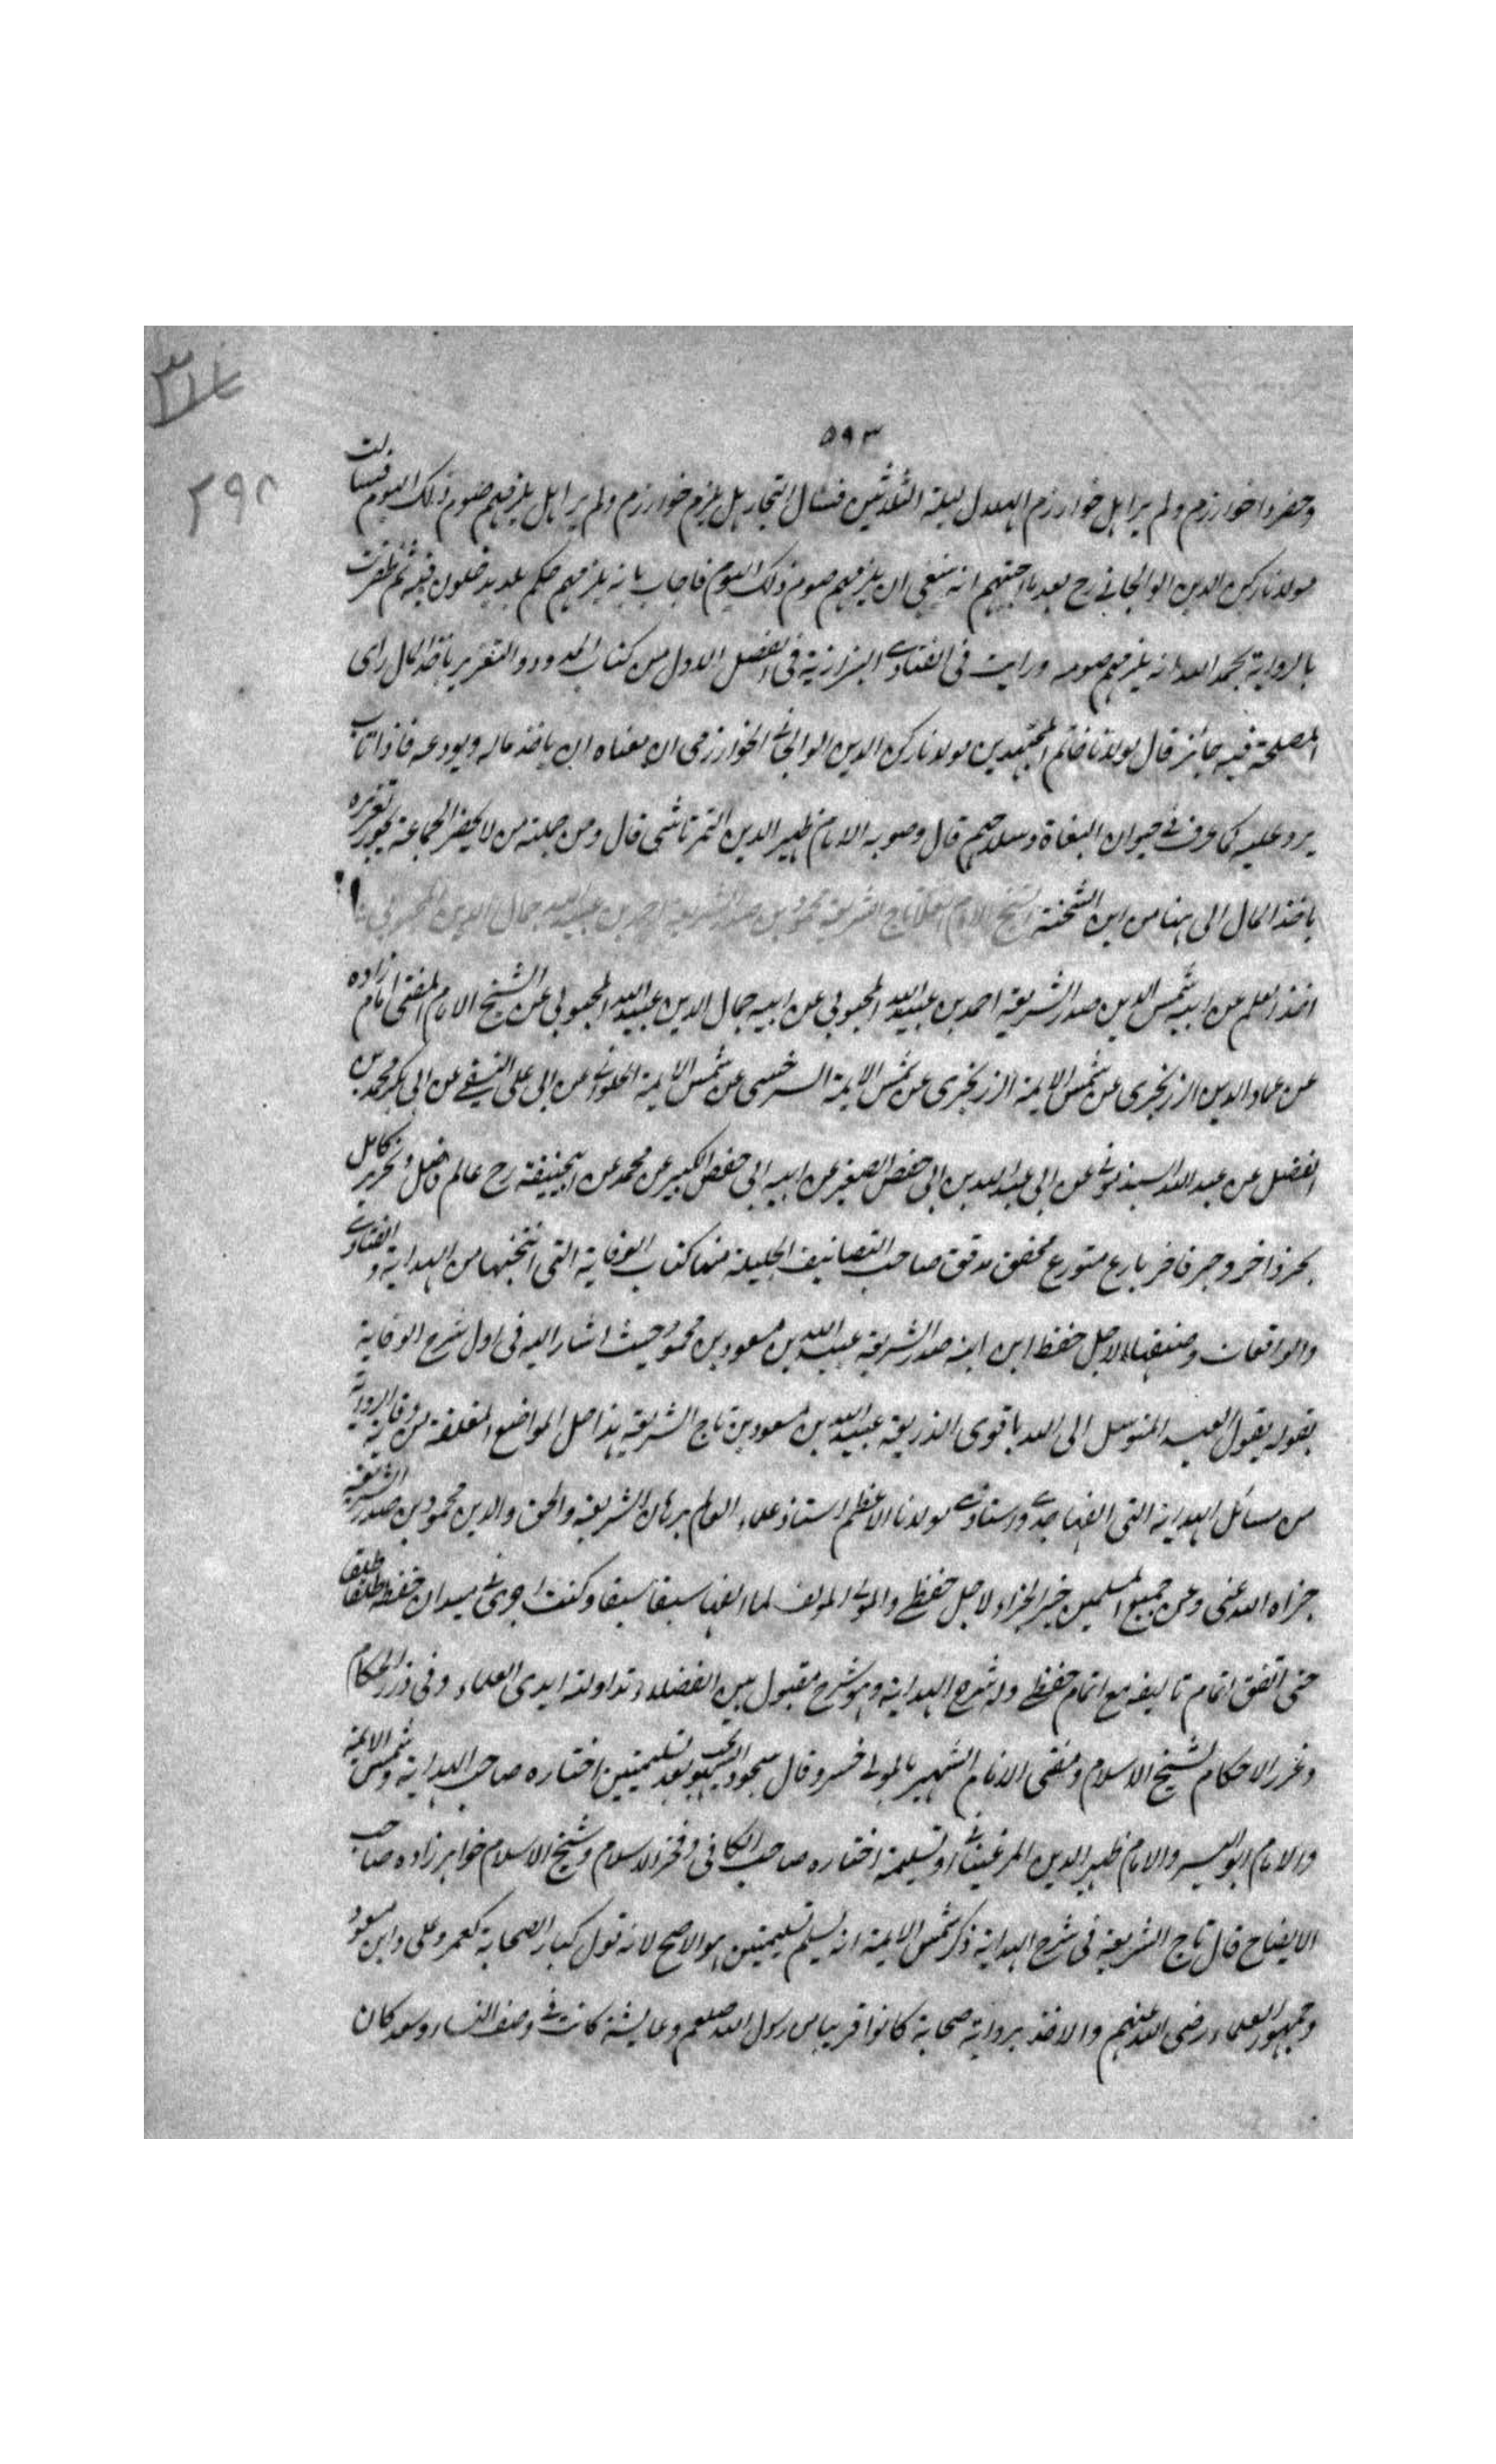 ٥٩٣
٢٩٨
وحضروا خوارزم ولم ير اهل خوارزم الهلال ليلة الثلاثين فسال التجار هل يلزم خوارزم ولم ير اهل يلزمهم صوم ذلك اليوم فسالت
مولانا ركن الدين الوالجاني رح بعد ما اجبتهم انه ينبغي ان يلزمهم صوم ذلك اليوم فاجاب بانه يلزمهم حكم بلد يدخلون فيه ثم ظفرت
بالرواية بحمد الله انه يلزمهم صومه ورايت في الفتاوى البزازية في الفصل الاول من كتاب الحدود والتعزير باخذ المال راى
المصلحة فيه جائز قال مولانا خاتم المجتهدين مولانا ركن الدين الوالجاني الخوارزمي ان معناه ان ياخذ ماله ويودعه فاذا تاب
يرد عليه كما عرف في حيوان البغاة وسلاحهم قال وصوبه الامام ظهير الدين التمرتاشي قال ومن جملته من لا يحضر الجماعة يجوز تعزيره
باخذ المال الى هنا من ابن الشحنة الشيخ الامام تاج الشريعة محمود بن صدر الشريعة احمد بن عبيد الله جمال الدين المحبوبي
اخذ العلم عن ابيه شمس الدين صدر الشريعة احمد بن عبيد الله المحبوبي عن ابيه جمال الدين عبيد الله المحبوبي عن الشيخ الامام المفتي امام زاده
عن عماد الدين الزرنجري عن شمس الايمة الزرنجري عن شمس الايمة السرخسي عن شمس الايمة الحلواني عن ابي علي النسفي عن ابي بكر محمد بن
الفضل عن عبد الله السبذموني عن ابي عبد الله بن ابي حفص الصغير عن ابيه ابي حفص الكبير عن محمد عن ابيحنيفة رح عالم فاضل ونحرير كامل
بحر ذاخر وحبر فاخر بارع متورع محقق مدقق صاحب التصانيف الجليلة منها كتاب الوقاية التي انتخبها من الهداية والفتاوى
والواقعات وصنفها لاجل حفظ ابن ابنه صدر الشريعة عبيد الله بن مسعود بن محمود حيث اشار اليه في اول شرح الوقاية
بقوله يقول العبد المتوسل الى الله باقوى الذريعة عبيد الله بن مسعود بن تاج الشريعة هذا حل المواضع المغلقة من وقاية الرواية
من مسائل الهداية التي الفها جدي واستاذي مولانا الاعظم استاذ علماء العالم برهان الشريعة والحق والدين محمود بن صدر الشريعة
جزاه الله عني وعن جميع المسلمين خير الجزاء لاجل حفظي والمولى المولف لما الفها سبقا سبقا وكنت اجري في ميدان حفظه طلقا طلقا
حتى اتفق اتمام تاليفه مع اتمام حفظي وله شرح الهداية وهو شرح مقبول بين الفضلاء تداولته ايدي العلماء وفي درر الحكام
وغرر الاحكام لشيخ الاسلام ومفتي الانام الشهير بالمولى خسرو قال سجود السهو يجب بعد تسليمتين اختاره صاحب الهداية وشمس الايمة
والامام ابو اليسر والامام ظهير الدين المرغيناني او تسليمة اختاره صاحب الكافي وفخر الاسلام وشيخ الاسلام خواهر زاده صاحب
الايضاح قال تاج الشريعة في شرح الهداية ذكر شمس الايمة انه يسلم تسليمتين هو الاصح لانه قول كبار الصحابة كعمر وعلي وابن مسعود
وجمهور العلماء رضي الله عنهم والاخذ برواية صحابة كانوا قريبا من رسول الله صلعم وعايشة كانت في وصف النساء وسعد كان